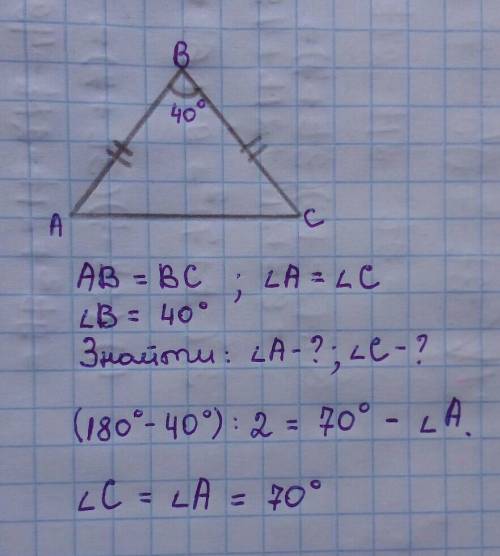 B
40°
A
C
AB = BC ; ∠A = ∠C
∠B = 40°
Знайти: ∠A - ? ; ∠C - ?
(180° - 40°) : 2 = 70° - ∠A.
∠C = ∠A = 70°